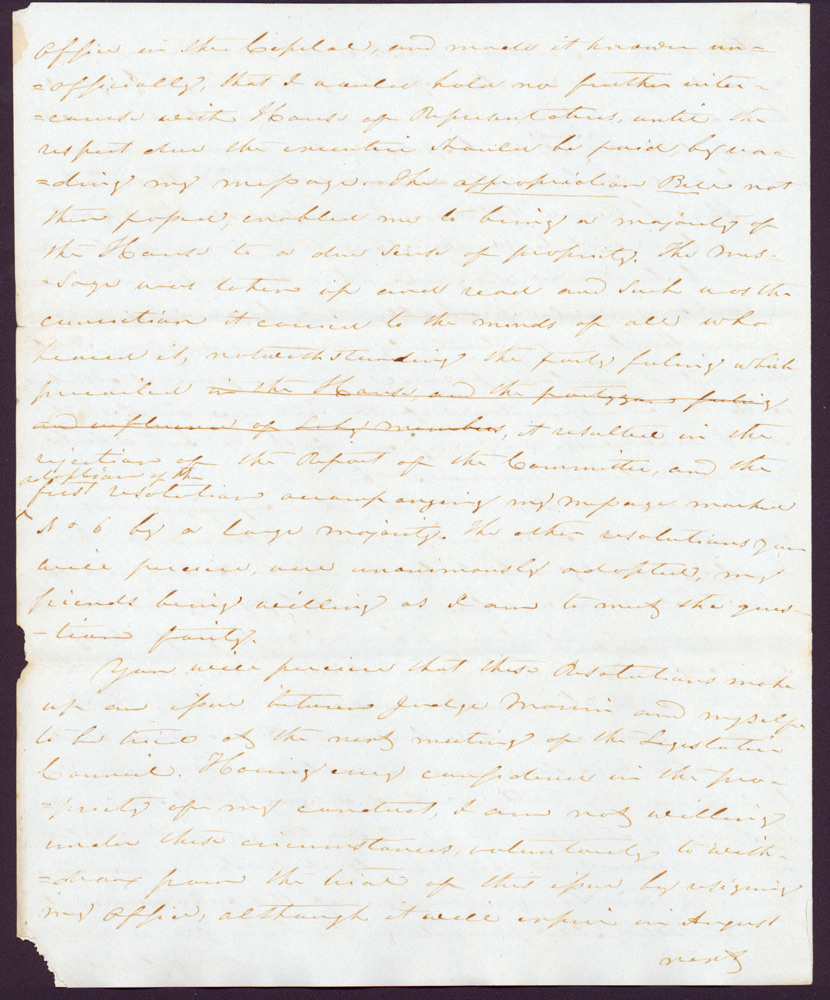 office in the Capital, and made it known un=
=officially, that I would hold no further inter=
=course with House of Representatives, until the
respect due the executive should be paid, by rea=
=ding my message. The appropriation Bill not
then passed, enabled me to bring a majority of
the House to a due sense of propriety. The mes-
-sage was taken up and read and such was the
conviction it carried to the minds of all who
heard it, notwithstanding the party feeling which
prevailed in the House, and the partyzan feeling
and influence of Loby members, it resulted in the
rejection of the Report of the Committee, and the
adoption of the
first resolution accompanying my message marked
No 6 by a large majority. The other resolutions you
will perceive, were unanimously adopted, my
friends being willing as I am to meet the ques-
-tion fairly.
You will perceive that these Resolutions make
up an issue between Judge and myself
to be tried at the next meeting of the Legislative
Council. Having every confidence in the pro-
-priety of my conduct, I am not willing
under these circumstances, voluntarily to with-
=draw from the trial of this issue, by resigning
my office, although it will expire in August
next